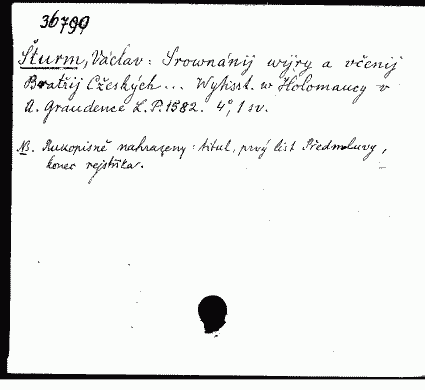 36799
Šturm, Václav: Srownánij wijry a včenij
Bratřij Cžeských... Wytisst. w Holomaucy v
A. Graudence L. P. 1582. 4°, 1 sv.
NB. Rukopisně nahrazeny: titul, prvý list Předmluvy,
konec rejstříka.